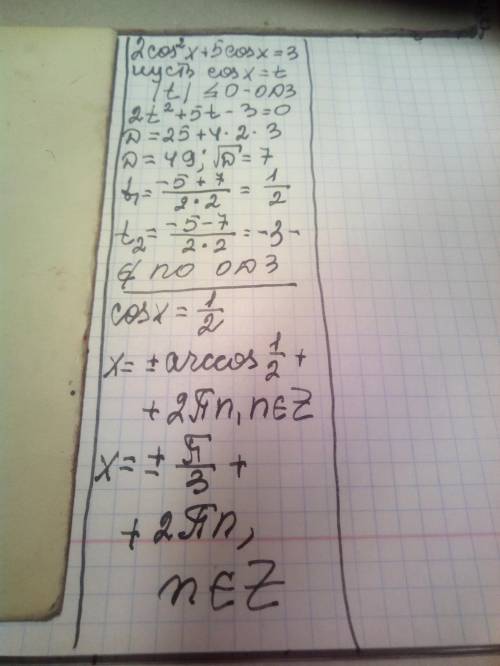 2cos²x+5cosx=3
пусть cosx=t
|t| ≤0-ОДЗ
2t²+5t-3=0
D=25+4·2·3
D=49; √D=7
t₁= (-5+7)/(2·2) = 1/2
t₂= (-5-7)/(2·2) =-3-
∉ ПО ОДЗ
cosx= 1/2
x= ±arccos 1/2 +
+ 2πn, n∈Z
x= ± π/3 +
+ 2πn,
n∈Z